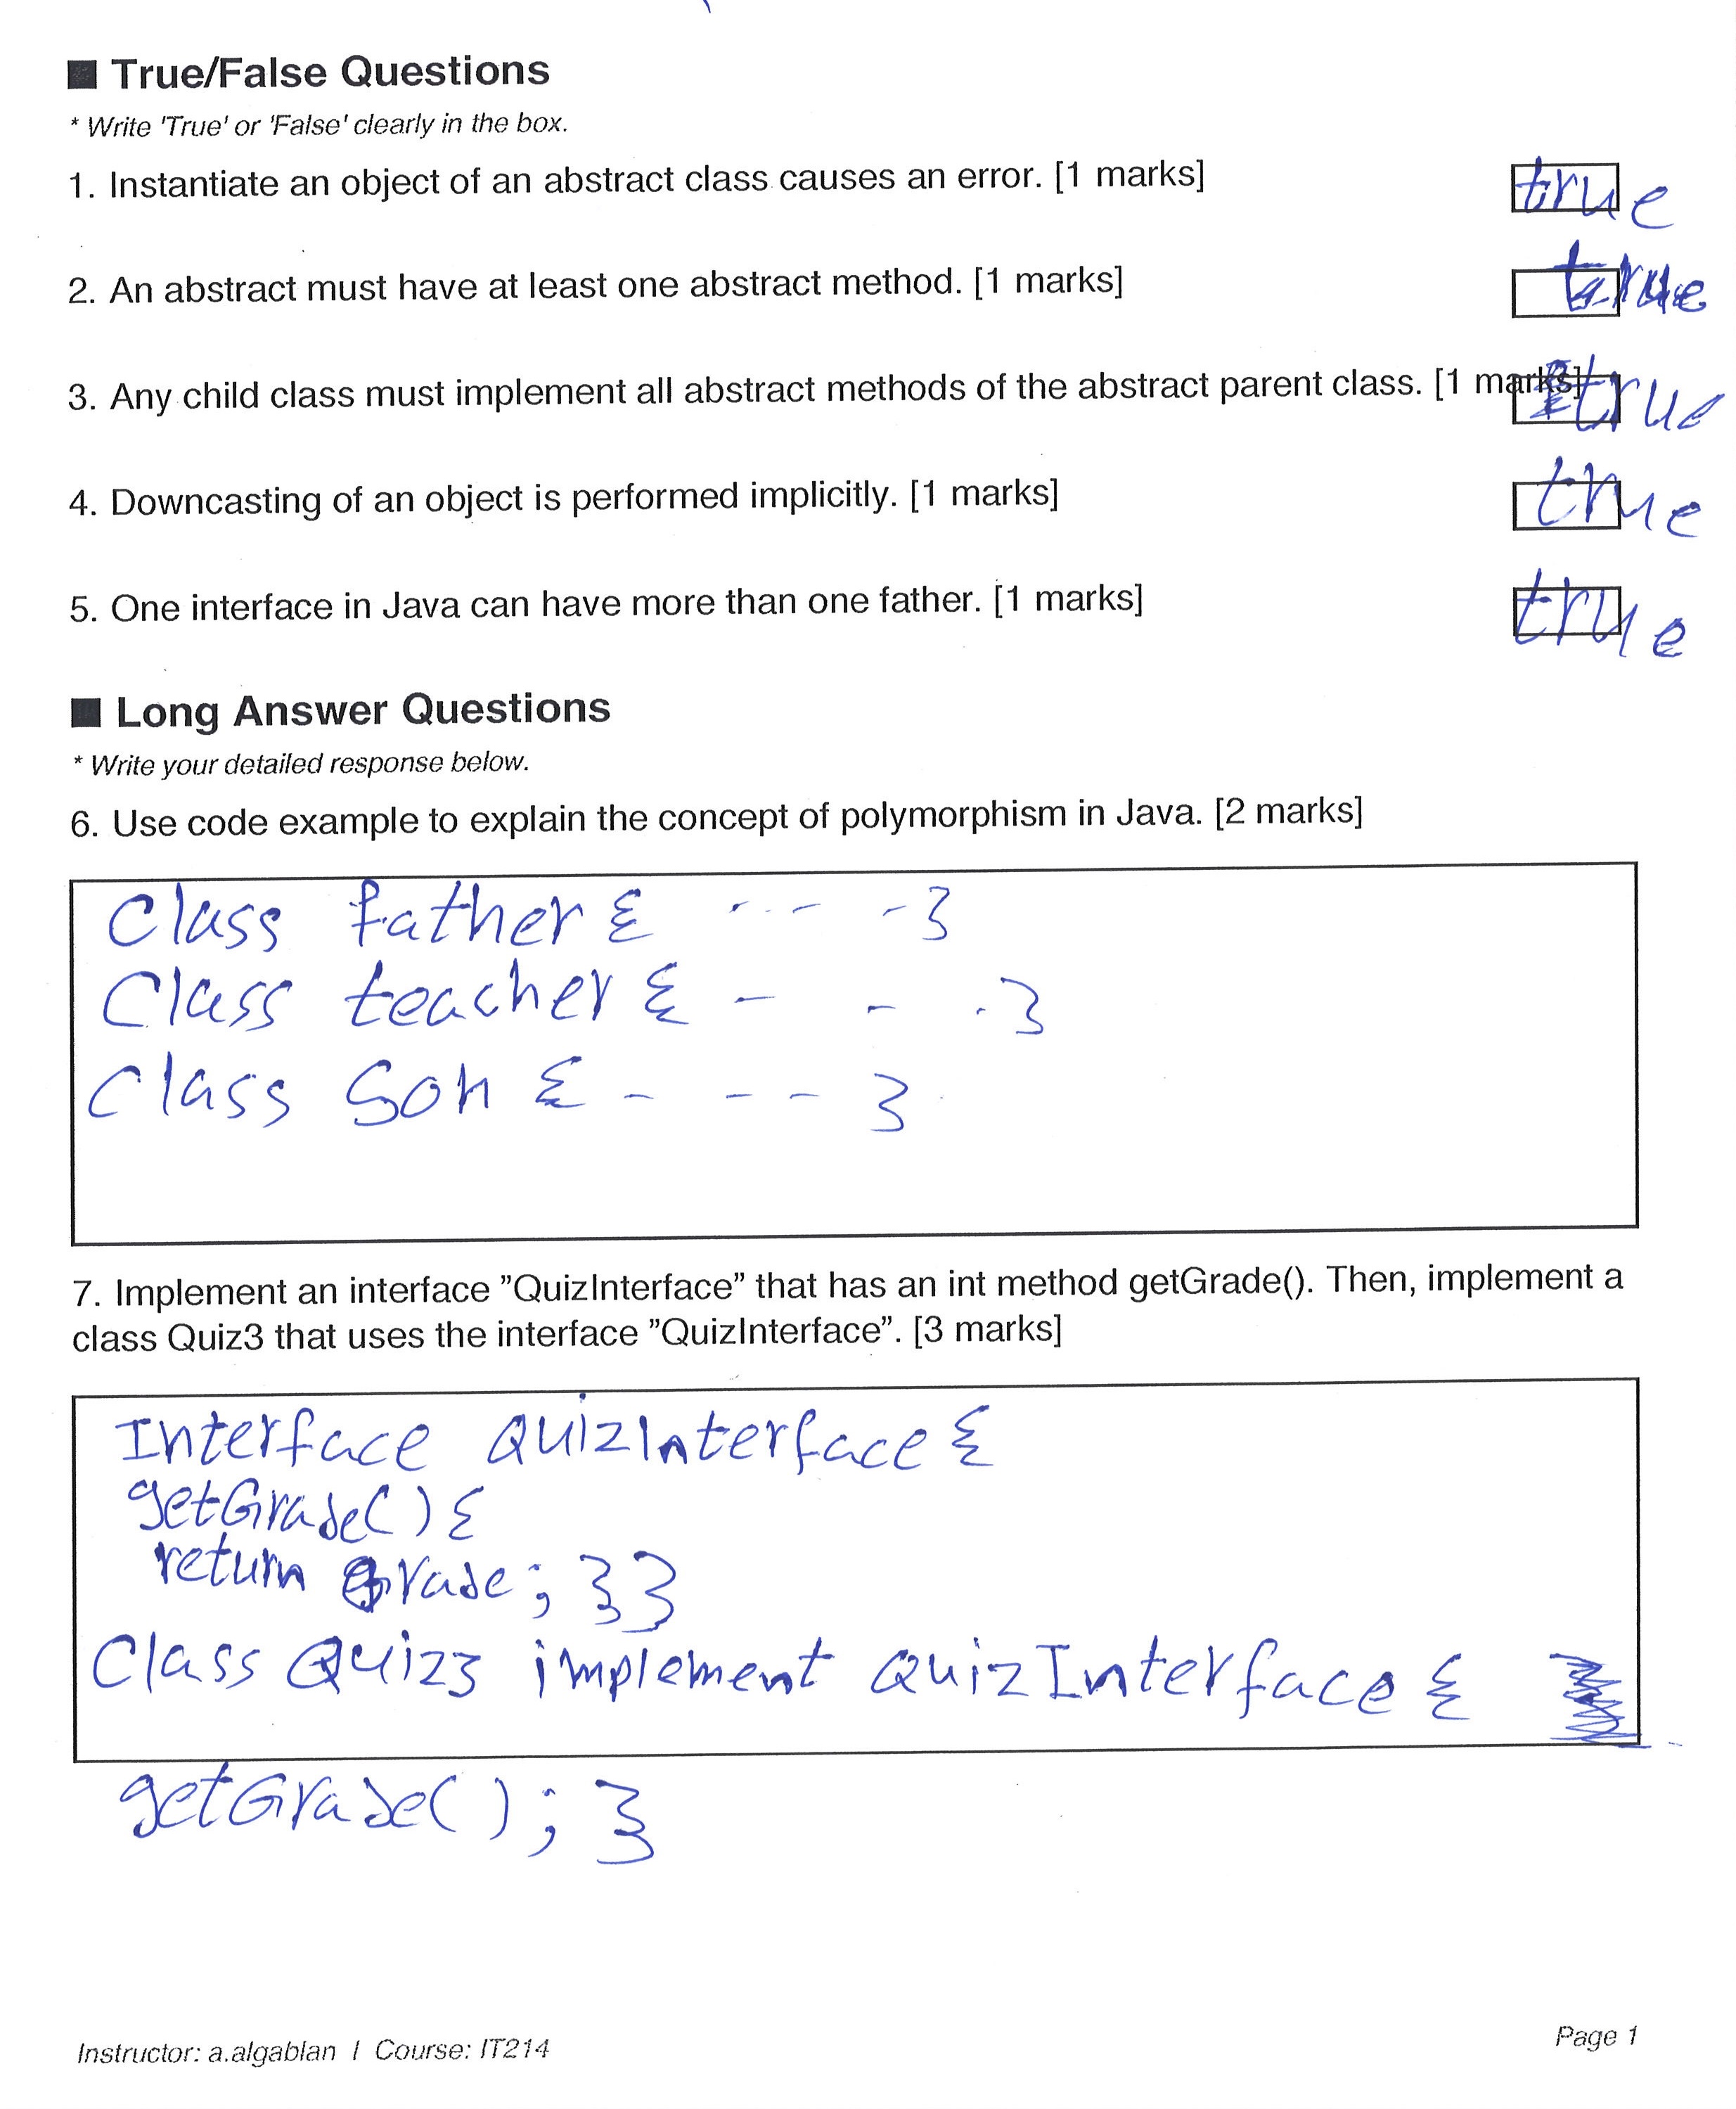 ■ True/False Questions
* Write 'True' or 'False' clearly in the box.
1. Instantiate an object of an abstract class causes an error. [1 marks]
true
2. An abstract must have at least one abstract method. [1 marks]
true
3. Any child class must implement all abstract methods of the abstract parent class. [1 marks]
true
4. Downcasting of an object is performed implicitly. [1 marks]
true
5. One interface in Java can have more than one father. [1 marks]
true
■ Long Answer Questions
* Write your detailed response below.
6. Use code example to explain the concept of polymorphism in Java. [2 marks]
Class father { - - - - }
Class teacher { - - - }
Class Son { - - - - }
7. Implement an interface ”QuizInterface” that has an int method getGrade(). Then, implement a
class Quiz3 that uses the interface ”QuizInterface”. [3 marks]
Interface QuizInterface {
getGrade() {
return Grade; } }
Class Quiz3 implement QuizInterface {
getGrade(); }
Instructor: a.algablan | Course: IT214
Page 1